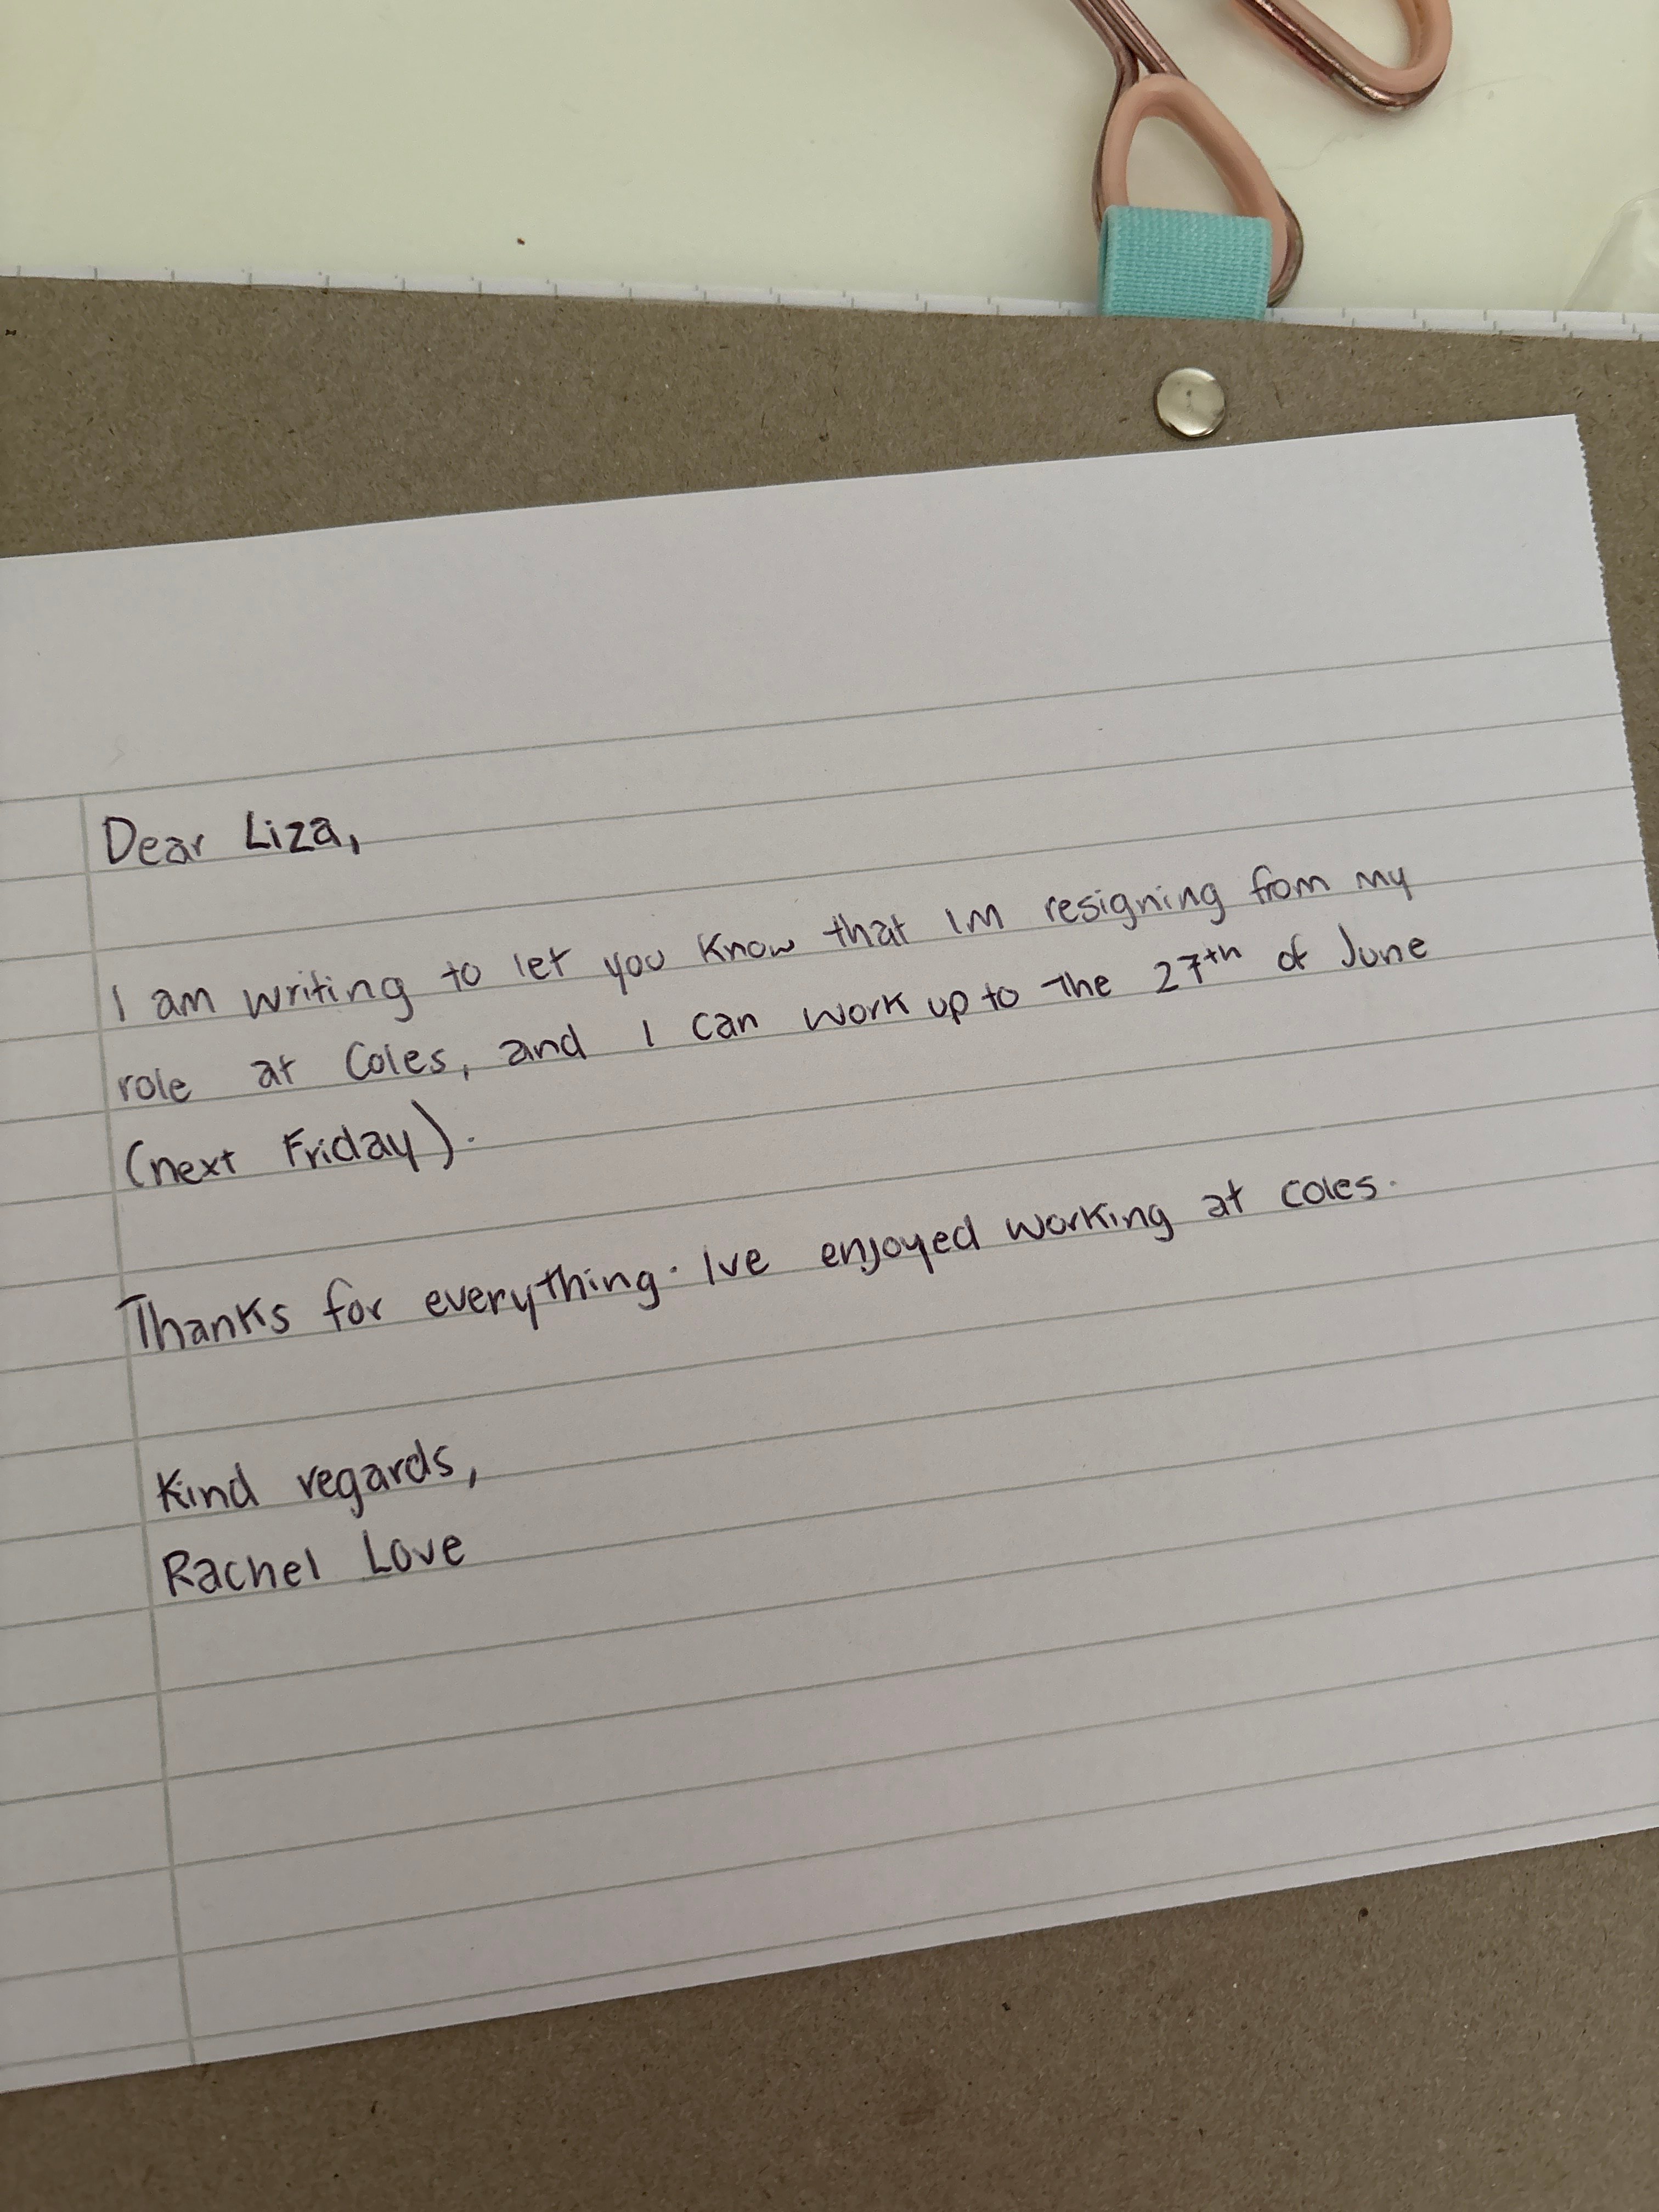 Dear Liza,
I am writing to let you know that Im resigning from my
role at Coles, and I can work up to the 27th of June
(next Friday).
Thanks for everything. Ive enjoyed working at coles.
Kind regards,
Rachel Love